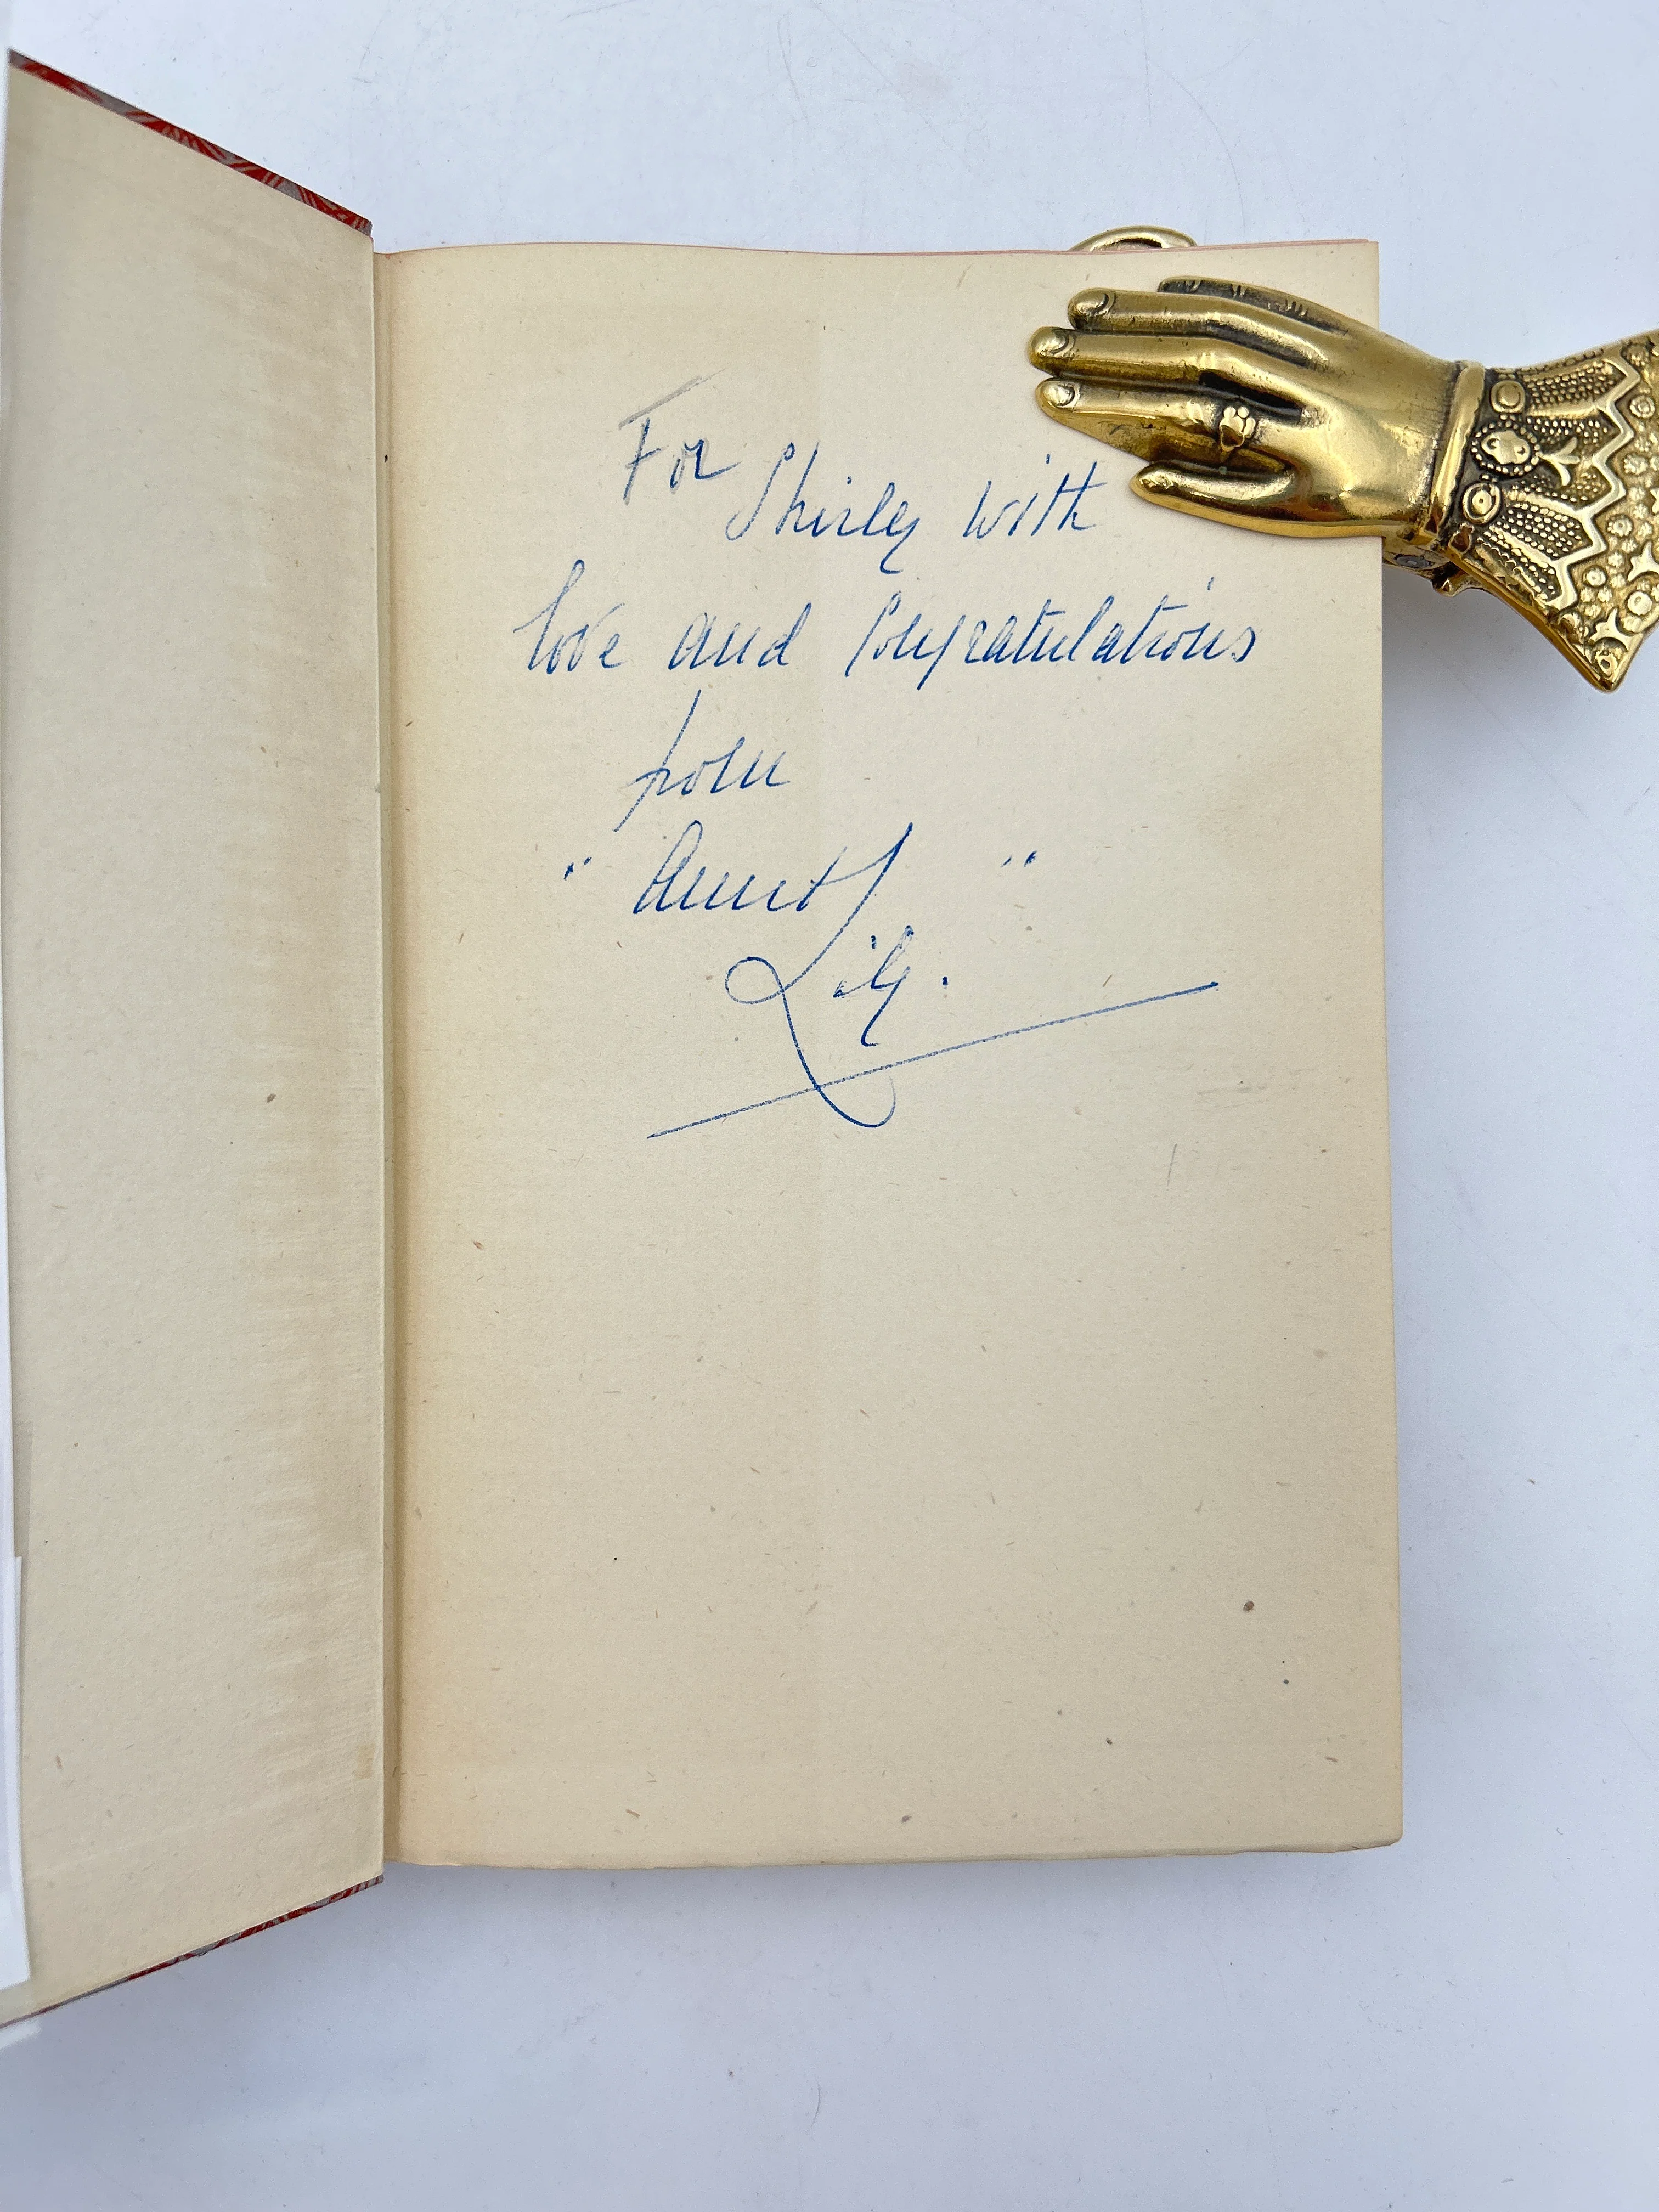 For
Shirley with
love and Congratulations
from
" Aunt "
Lily.